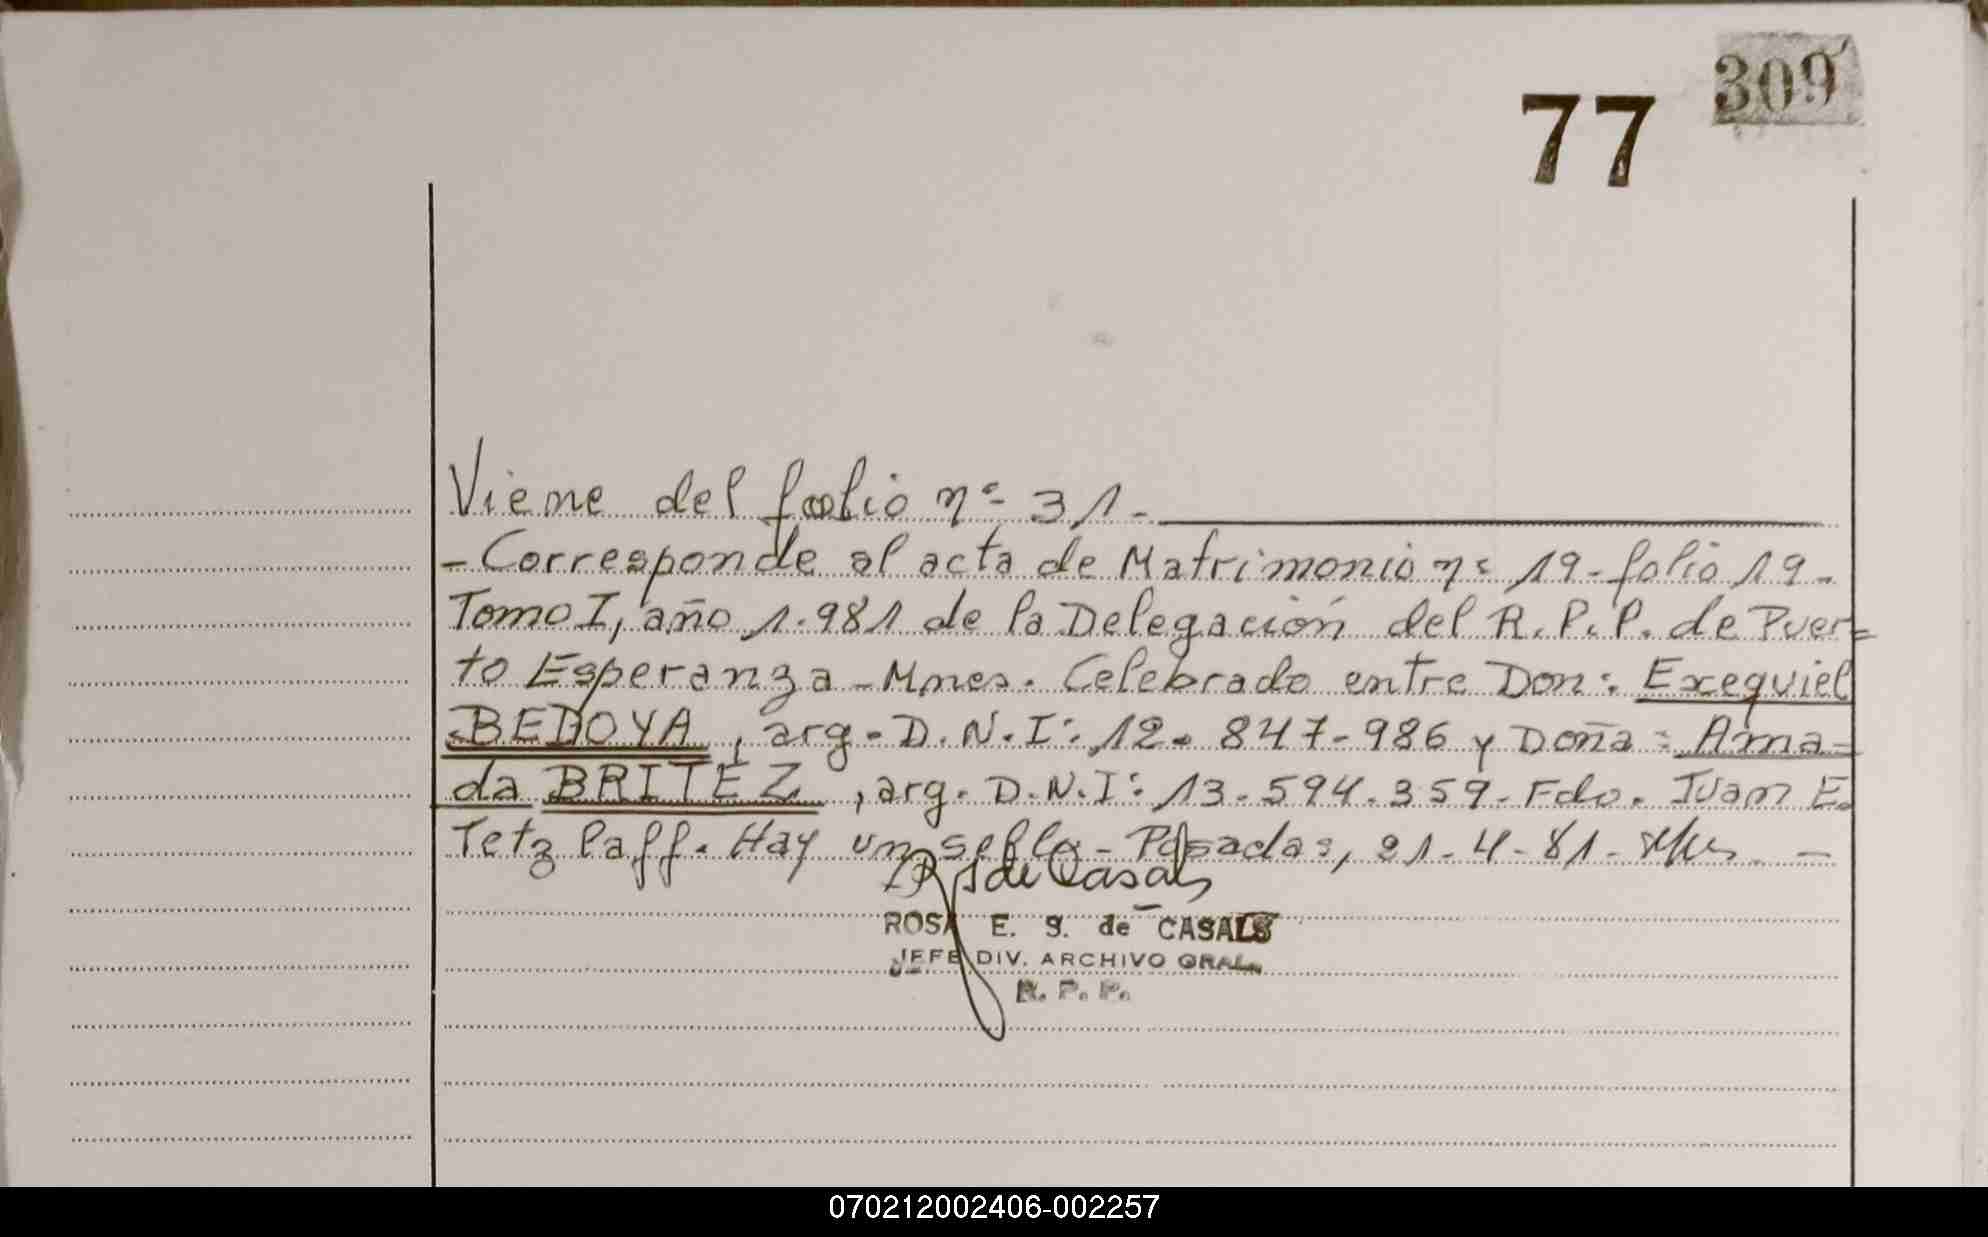 309
77
Viene del folio nº 31-
- Corresponde al acta de Matrimonio nº 19- folio 19-
Tomo I, año 1.981 de la Delegación del R.P.P. de Puer=
to Esperanza - Mnes. Celebrado entre Don: Exequiel
BEDOYA, arg- D.N.I: 12. 847-986 y Doña: Ama=
da BRITEZ, arg. D.N.I: 13.594.359- Fdo. Juan E.
Tetz laff. Hay un sello- Posadas, 21-4-81-
ROSA E. S. de CASALS
JEFE DIV. ARCHIVO GRAL.
R. P. P.
070212002406-002257